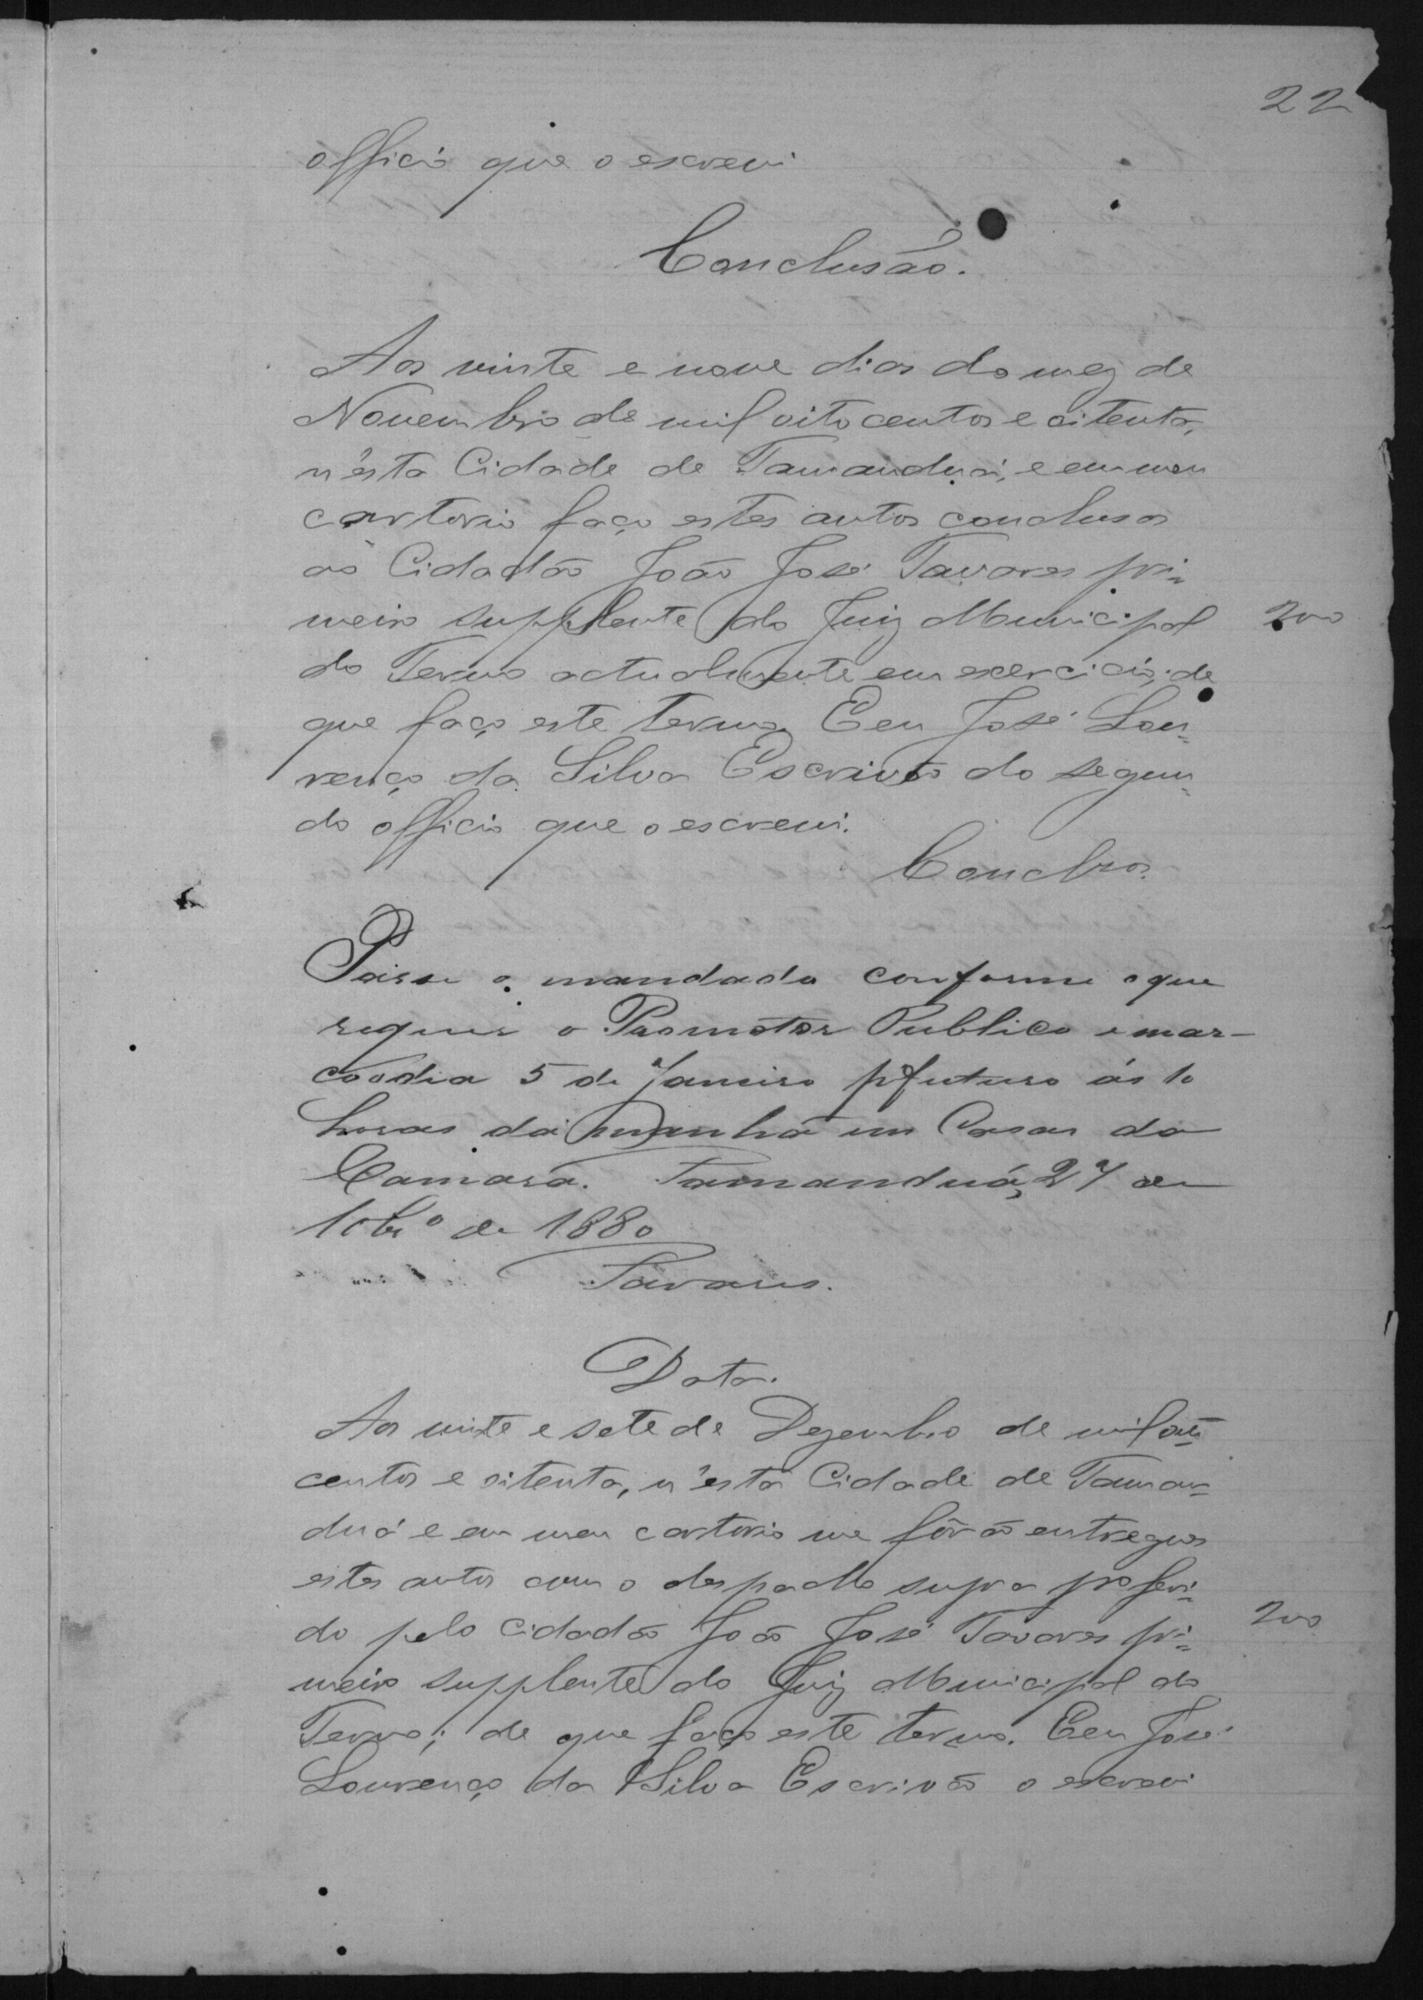 22
officio que o escrevi
Conclusão.
Aos vinte e nove dias do mez de
Novembro de mil oito centos e oitenta,
n'esta Cidade de Tamanduá, e em meu
cartorio faço estes autos conclusos
ao Cidadão João José Tavares pri-
meiro supplente do Juiz Municipal
200
do Termo actualmente em exercicio, de
que faço este termo. E eu José Lou-
renço da Silva Escrivão do segun-
do officio que o escrevi.
Conclzos.
Passe o mandado conforme o que
requer o Promotor Publico e mar-
co o dia 5 de Janeiro pº futuro ás 10
horas da manhã em Casas da
Camara. Tamanduá, 27 de
10brº de 1880
Tavares.
Data.
Aos vinte e sete de Dezembro de mil oito
centos e oitenta, n'esta Cidade de Taman-
duá e em meu cartorio me fôrão entregues
estes autos com o despacho supra proferi-
do pelo Cidadão João José Tavares pri-
200
meiro supplente do Juiz Municipal do
Termo; de que faço este termo. E eu José
Lourenço da Silva Escrivão o escrevi